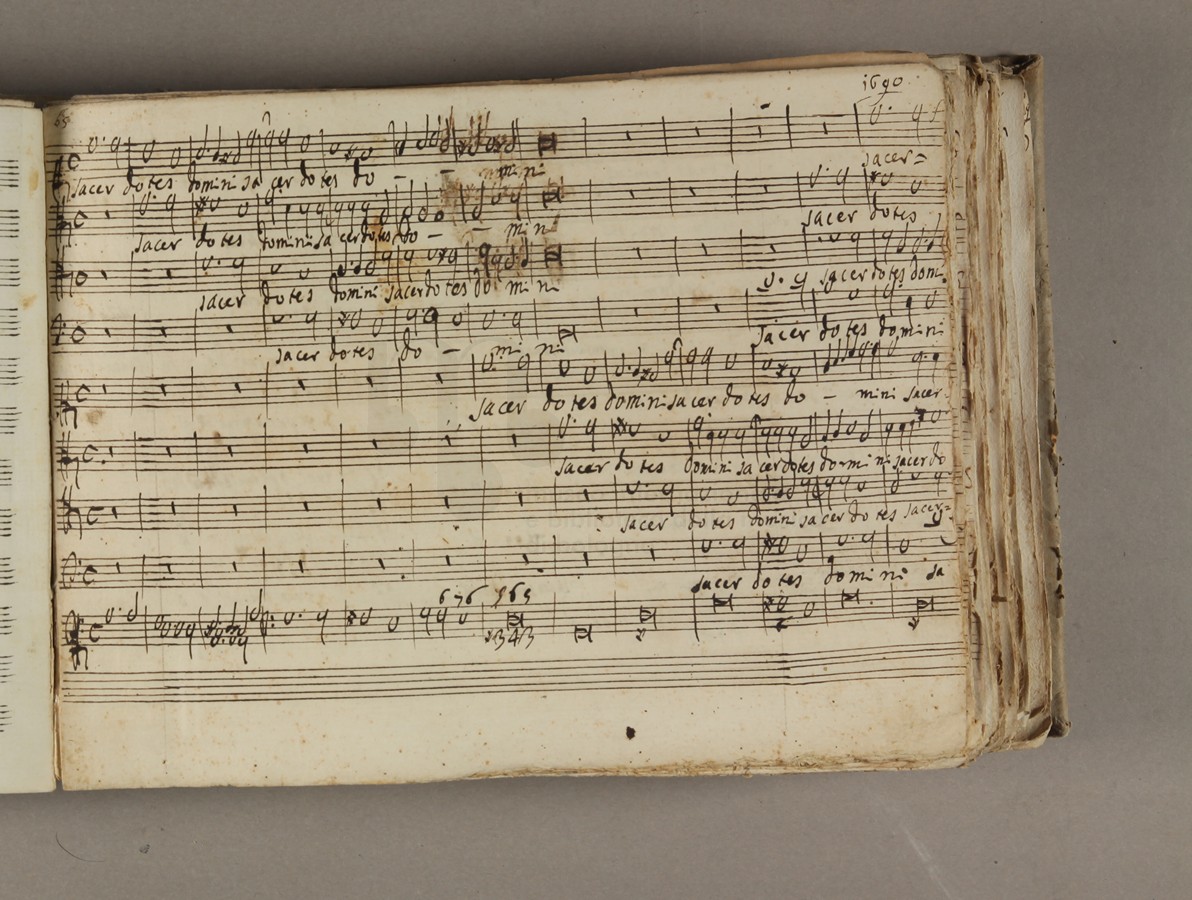 1690
sacer=
sacer dotes domini sa cer dotes do - - mini
sacer dotes
sacer dotes domini sa cerdotes do - - mini
sacerdotes domi
sacer dotes domini sacerdotes do mini
sacer dotes domini
sacer dotes do - mini
sacer dotes domini sacer dotes do - mini sacer
sacer dotes domini sa cerdotes do-mini sacerdo
sacer dotes domini sacer dotes sacer=
sacer dotes domini sa
6 76 565
343